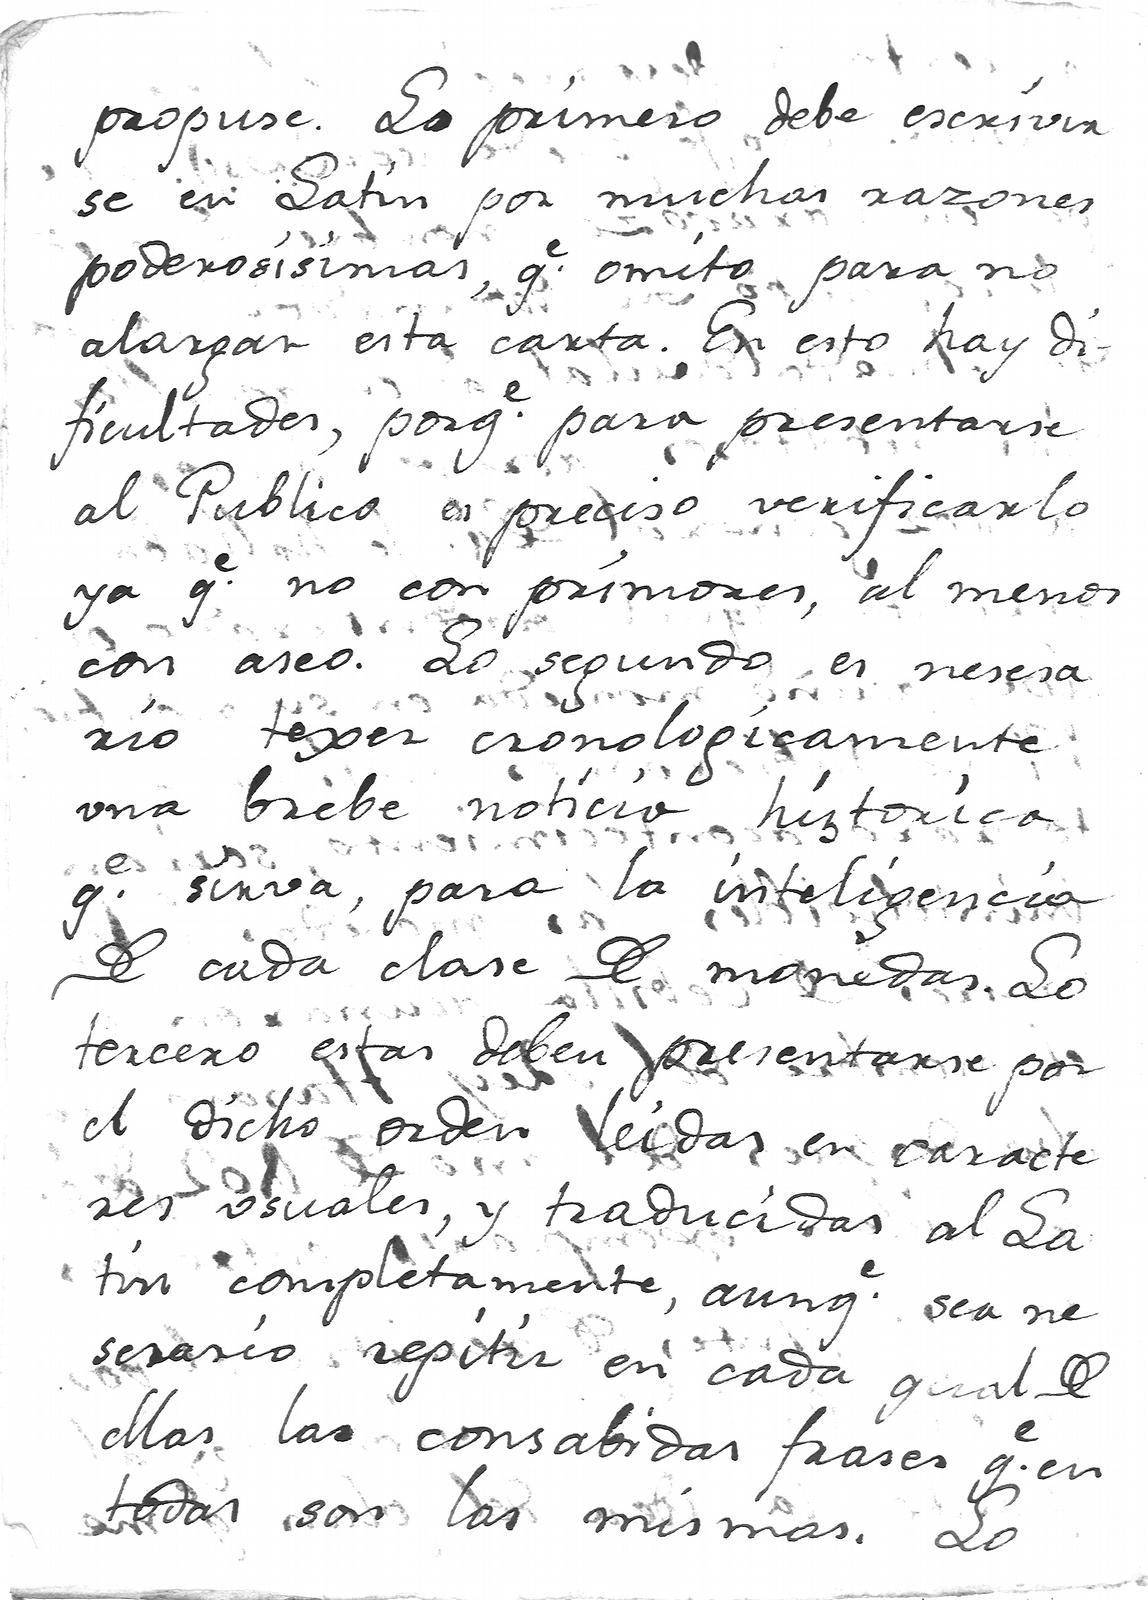 propuse. Lo primero debe escrivir
se en Latin por muchas razones
poderosisimas, q.e omito para no
alargar esta carta. En esto hay di-
ficultades, porq.e para presentarse
al Publico es preciso verificarlo
ya q.e no con primores, al menos
con aseo. Lo segundo es nesesa
rio texer cronologicamente
una brebe noticia historica
q.e sirva, para la inteligencia
De cada clase De monedas. Lo
tercero estas deben presentarse por
el dicho orden leidas en caracte
res usuales, y traducidas al La
tin completamente, aunq.e sea ne
sesario repitir en cada qual De
ellas las consabidas frases q.e en
todas son las mismas. Lo